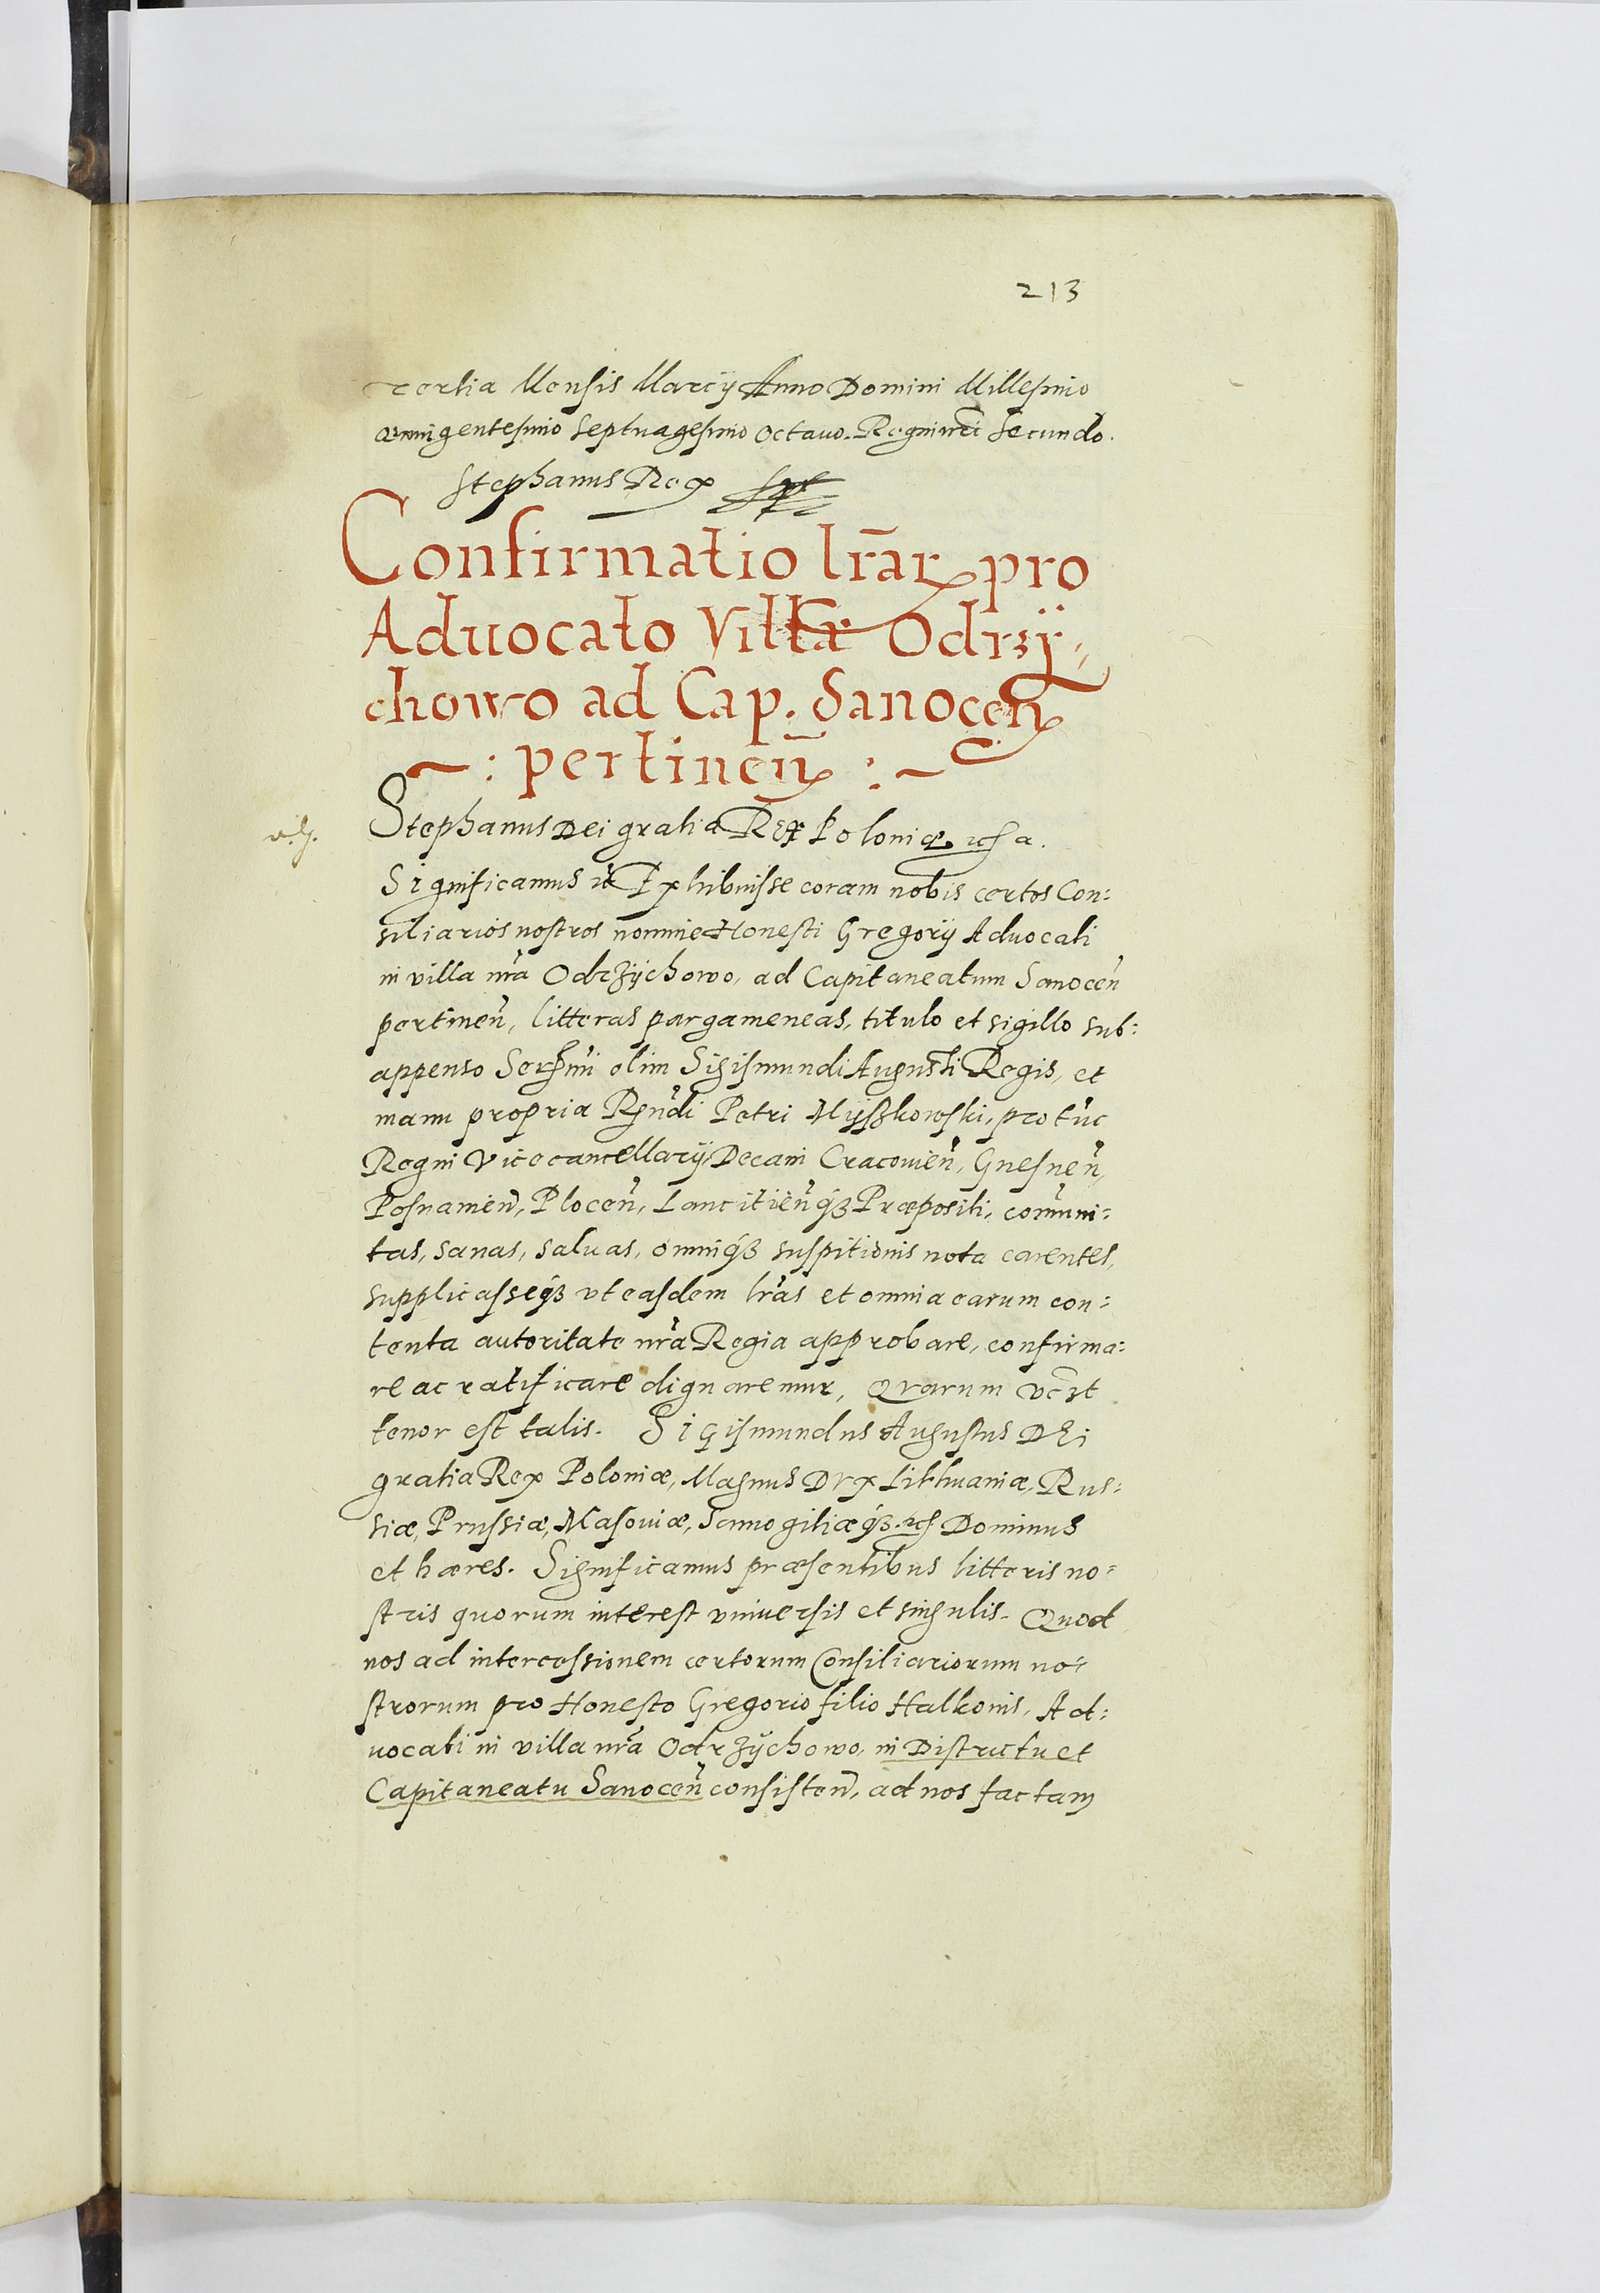 213
tertia Mensis Marcij Anno Domini Millesimo
Quingentesimo Septuagesimo octauo. Regni nr̃i Secundo.
Stephanus Rex
Confirmatio lr̃ar pro
Aduocato Villa Odrzÿ
chowo ad Cap. Sanocen̄
~ : pertinen̄ : ~
Stephanus Dei gratia Rex Poloniæ etc a.
Significamus etc Exhibuisse coram nobis certos Con:
siliarios nostros nomine Honesti Gregorij Aduocati
in villa nr̃a Odrzÿchowo, ad Capitaneatum Sanocen̄
pertinen̄, litteras pargameneas, titulo et sigillo sub:
appenso Serm̄i olim Sigismundi Augusti Regis, et
manu propria Rn̄di Petri Mÿszkowski, pro tūc
Regni Vicecancellarij, Decani Cracouien̄, Gnesnen̄,
Posnanien̄, Plocen̄, Lancitien̄q3 Præpositi, com̄uni:
tas, sanas, saluas, omniq3 suspitionis nota carentes,
supplicasseq3 vt easdem lr̃as et omnia earum con:
tenta autoritate nr̃a Regia approbare, confirma:
re ac ratificare dignaremur, Quarum
tenor est talis. Sigismundus Augustus DEi
gratia Rex Poloniæ, Magnus Dvx Litthuaniæ, Rus:
siæ, Prussiæ, Masouiæ, Samogitiæq3. etc Dominus
et hæres. Significamus præsentibus litteris no:
stris quorum interest vniuersis et singulis. Quod
nos ad intercessionem certorum Consiliariorum no:
strorum pro Honesto Gregorio filio Halkonis, Ad:
uocati in villa nr̃a Odrzÿchowo, in Districtu et
Capitaneatu Sanocen̄ consisten̄, ad nos factam